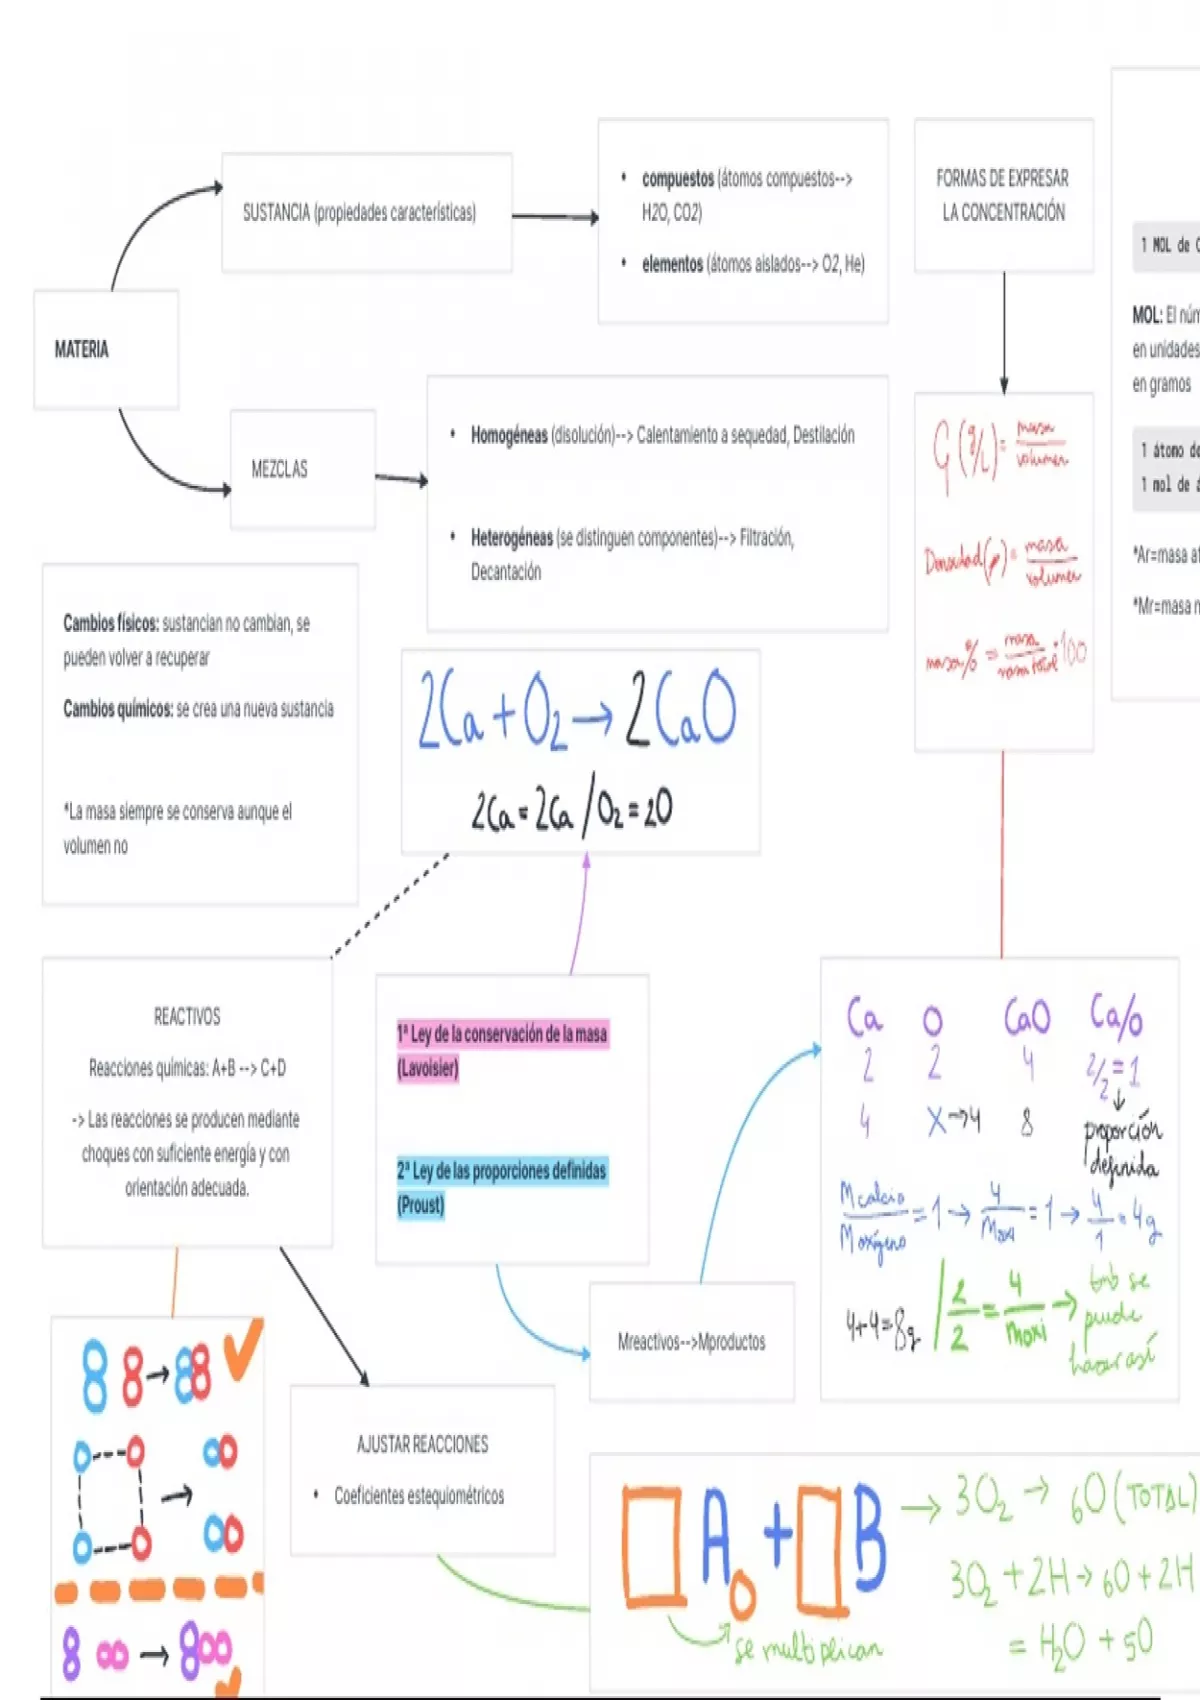 SUSTANCIA (propiedades características)
• compuestos (átomos compuestos-->
H2O, CO2)
• elementos (átomos aislados--> O2, He)
FORMAS DE EXPRESAR
LA CONCENTRACIÓN
MATERIA
MEZCLAS
• Homogéneas (disolución)--> Calentamiento a sequedad, Destilación
• Heterogéneas (se distinguen componentes)--> Filtración,
Decantación
G (g/L) = masa / volumen
Densidad (ρ) = masa / volumen
masa % = masa / masa total · 100
1 MOL de
MOL: El
en unidades
en gramos
1 átomo
1 mol de
*Ar=masa
*Mr=masa
Cambios físicos: sustancian no cambian, se
pueden volver a recuperar
Cambios químicos: se crea una nueva sustancia
*La masa siempre se conserva aunque el
volumen no
2Ca + O₂ → 2CaO
2Ca = 2Ca / O₂ = 2O
REACTIVOS
Reacciones químicas: A+B --> C+D
-> Las reacciones se producen mediante
choques con suficiente energía y con
orientación adecuada.
1ª Ley de la conservación de la masa
(Lavoisier)
2ª Ley de las proporciones definidas
(Proust)
Mreactivos-->Mproductos
Ca O CaO Ca/O
2 2 4 2/2 = 1
4 X→4 8
↓
proporción
definida
Mcalcio / Moxígeno = 1 → 4 / Moxi = 1 → 4/1 = 4g
4+4=8g / 2/2 = 4/moxi → tmb se
puede
hacer así
AJUSTAR REACCIONES
• Coeficientes estequiométricos
□A₀ + □B
se multiplican
→ 3O₂ → 6O (TOTAL)
3O₂ + 2H → 6O + 2H
= H₂O + 5O